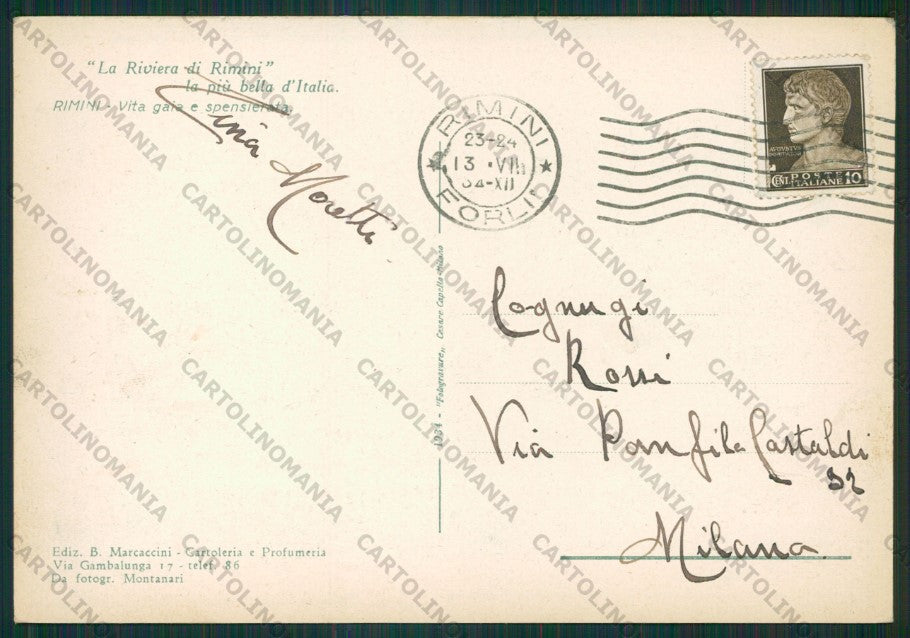 "La Riviera di Rimini"
la più bella d'Italia.
RIMINI - Vita gaia e spensierata.
Moretti
RIMINI
23-24
13 · VIII
34-XII
FORLI
AVGVSTVS
CENT. POSTE ITALIANE 10
Rossi
Via Panfilo Castaldi
32
Milano
1934 - "Fotogravure„ Cesare Capello-Milano
Ediz. B. Marcaccini - Cartoleria e Profumeria
Via Gambalunga 17 - telef. 86
Da fotogr. Montanari
CARTOLINOMANIA